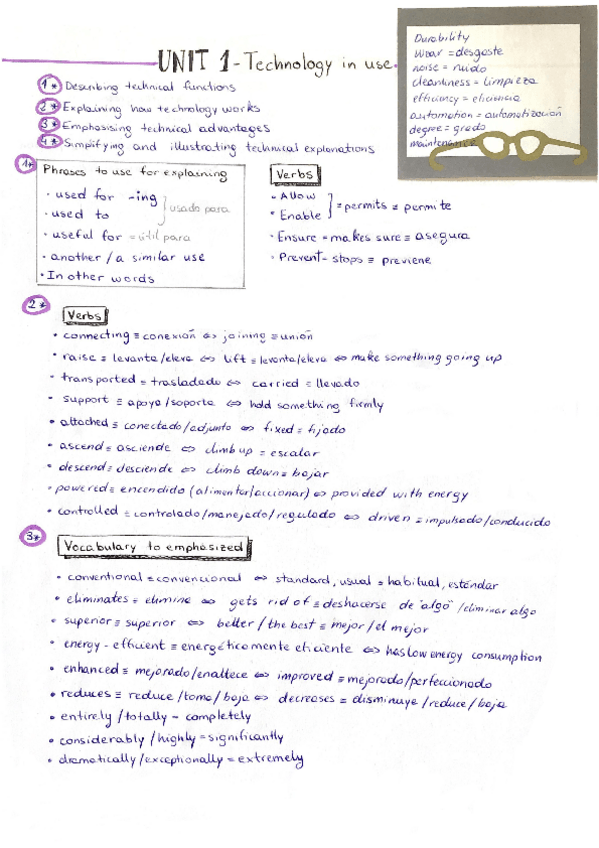 UNIT 1 - Technology in use
1* Describing technical functions
2* Explaining how technology works
3* Emphasising technical advantages
4* Simplifying and illustrating technical explanations
Durability
Wear = desgaste
noise = ruido
cleanliness = limpieza
efficiency = eficiencia
automation = automatización
degree = grado
maintenance
1*
Phrases to use for explaining
• used for -ing
• used to
usado para
• useful for = útil para
• another / a similar use
• In other words
Verbs
• Allow
• Enable
= permits ≡ permite
• Ensure = makes sure ≡ asegura
• Prevent - stops ≡ previene
2*
Verbs
• connecting ≡ conexión ⇔ joining ≡ unión
• raise ≡ levanta/eleva ⇔ lift ≡ levanta/eleva ⇔ make something going up
• transported ≡ trasladado ⇔ carried = llevado
• support ≡ apoya/soporta ⇔ hold something firmly
• attached ≡ conectado/adjunto ⇔ fixed = fijado
• ascend ≡ asciende ⇔ climb up = escalar
• descend ≡ desciende ⇔ climb down = bajar
• powered ≡ encendido (alimentar/accionar) ⇔ provided with energy
• controlled = controlado/manejado/regulado ⇔ driven = impulsado/conducido
3*
Vocabulary to emphasized
• conventional = convencional ⇔ standard, usual = habitual, estándar
• eliminates = elimina ⇔ gets rid of ≡ deshacerse de "algo" / eliminar algo
• superior ≡ superior ⇔ better / the best ≡ mejor / el mejor
• energy - efficient ≡ energéticamente eficiente ⇔ has low energy consumption
• enhanced ≡ mejorado/enaltece ⇔ improved ≡ mejorado/perfeccionado
• reduces ≡ reduce / toma / baja ⇔ decreases = disminuye / reduce / baja
• entirely / totally - completely
• considerably / highly = significantly
• dramatically / exceptionally = extremely